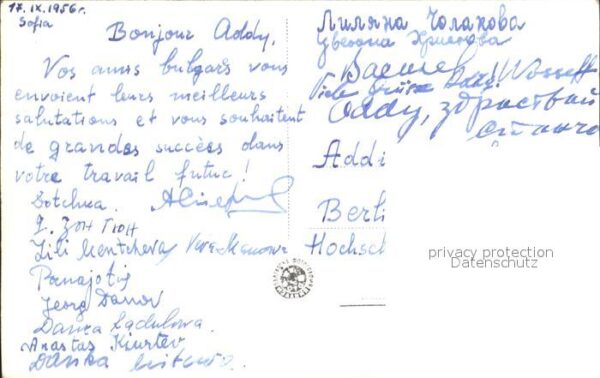 17.IX.1956г.
Sofia
Bonjour Addy,
Vos amis bulgars vous
envoient leurs meilleurs
salutations et vous souhaitent
de grandes succèes dans
votre travail futur!
Botchka
Зон Гион
Lili Mentcheva Vera
Panajotis
Georg Danov
Danka Ladulova.
Anastas Kiurtev
Danka
Лиляна Чолакова
Цветана
Viele Grüße
Addy, здравствай
Addi
Berli
Hochsch
privacy protection
Datenschutz